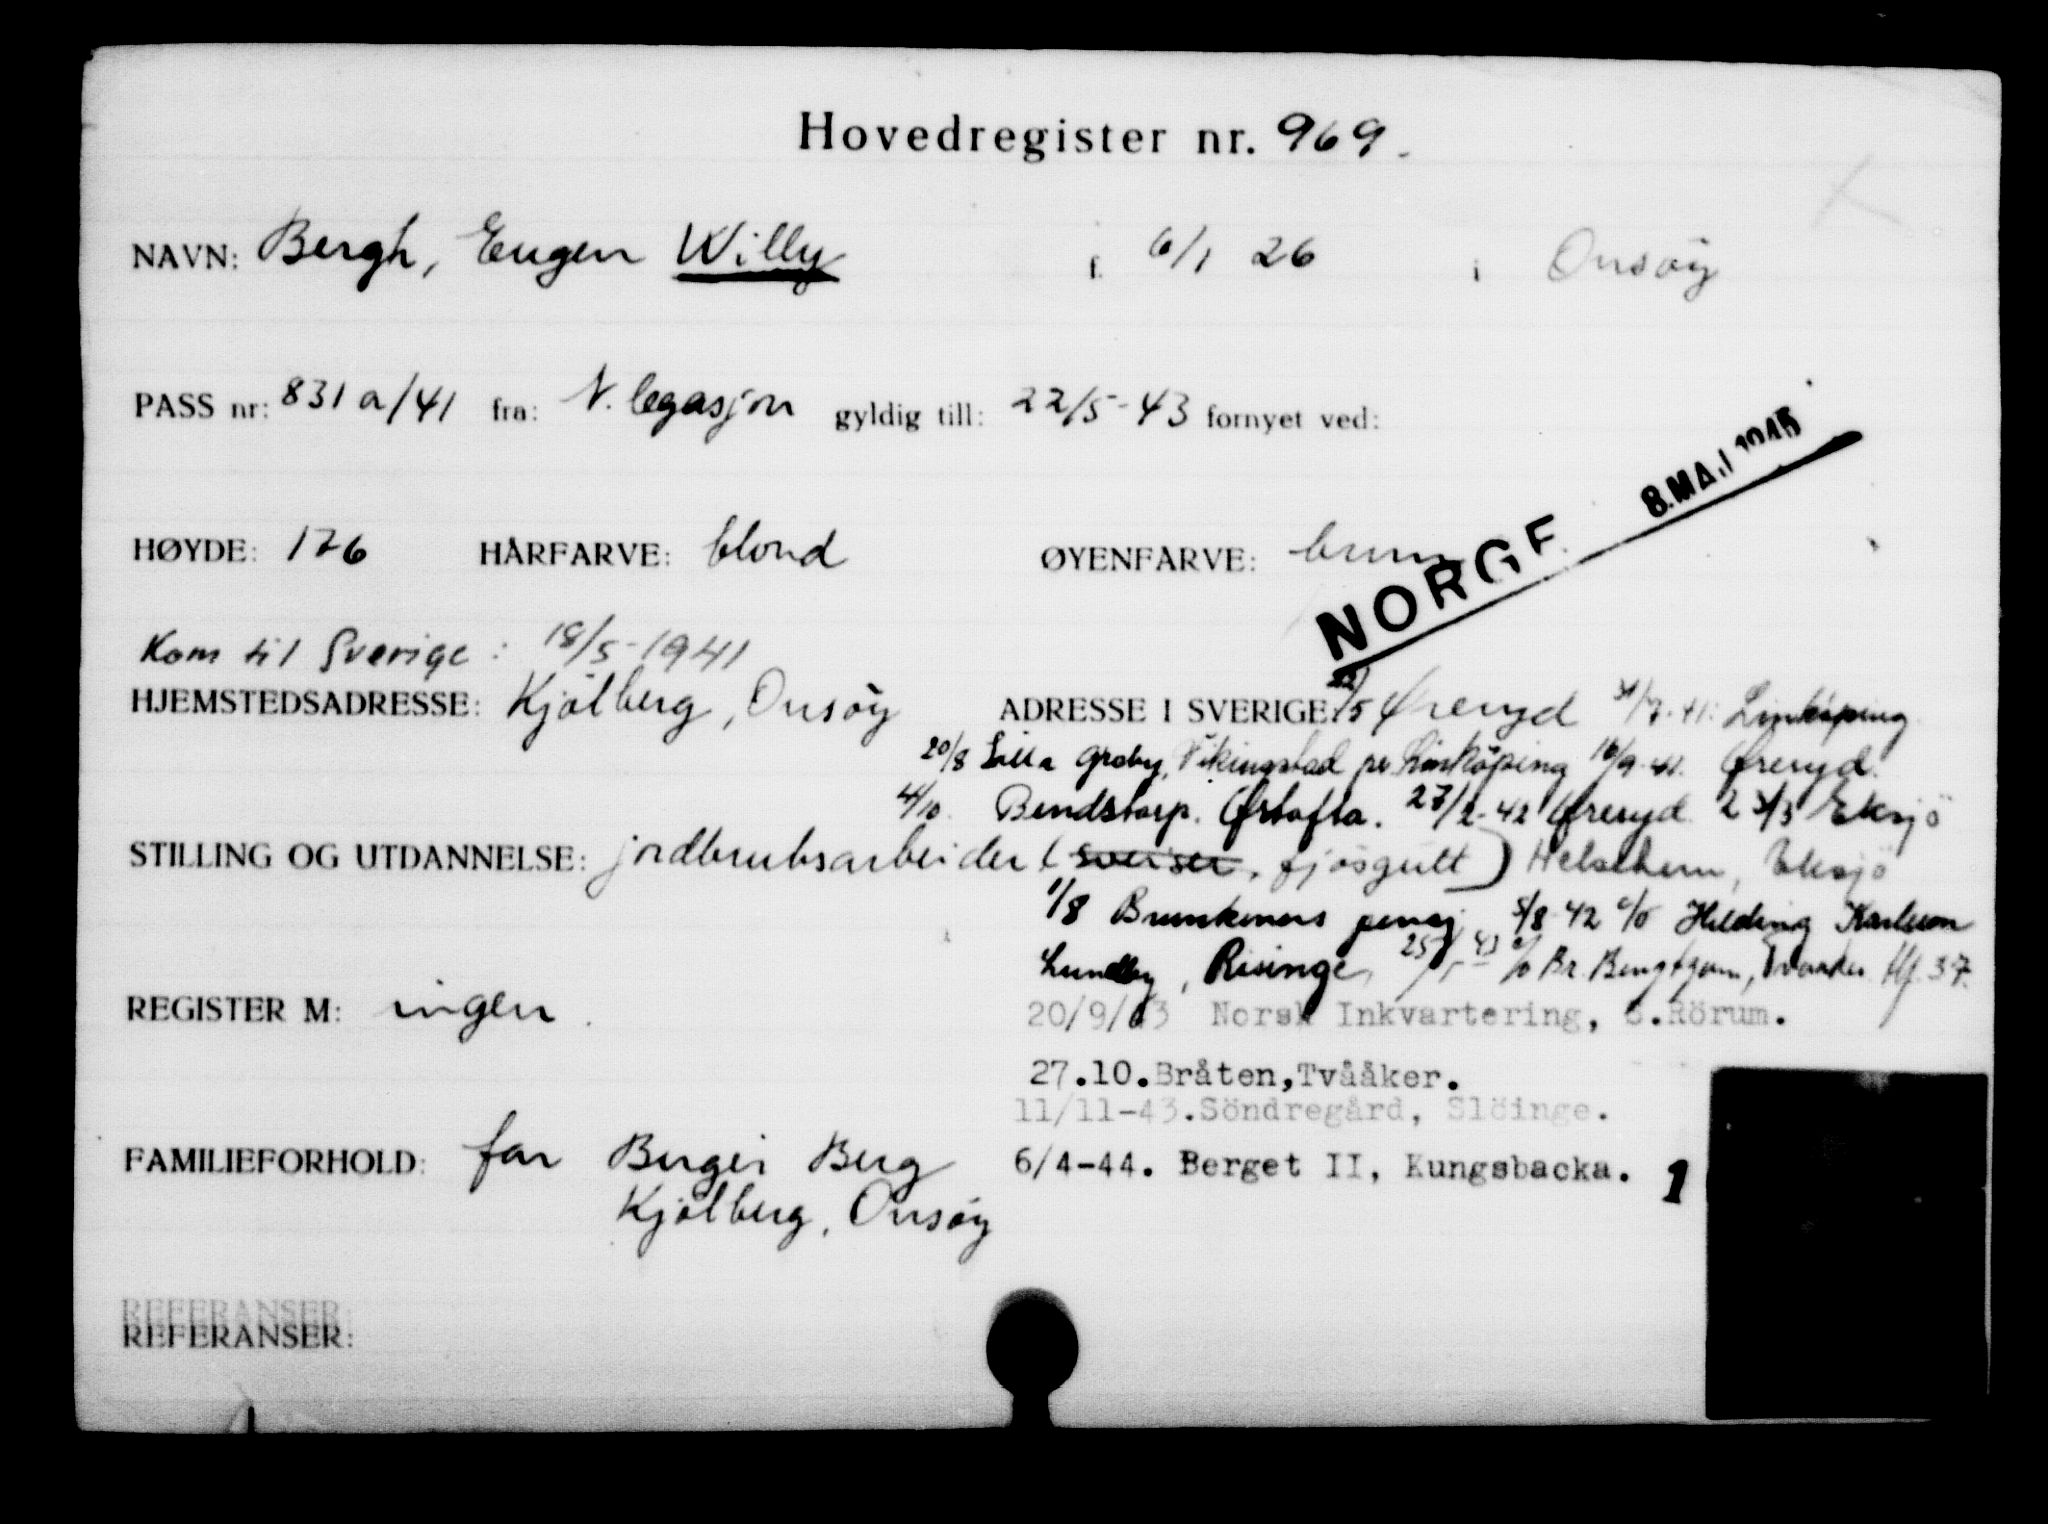 Hovedregister nr. 969.
NAVN: Bergh, Eugen Willy f. 6/1 26 i Onsøy
PASS nr: 831a/41 fra: N. legasjon gyldig till: 22/5-43 fornyet ved:
8. MAJ 1945
NORGE
HØYDE: 176 HÅRFARVE: blond ØYENFARVE: brun
Kom til Sverige: 18/5-1941
HJEMSTEDSADRESSE: Kjølberg, Onsøy ADRESSE I SVERIGE: 22/5 Øreryd 31/7-41: Linköping
20/8 Lilla Greby, Vikingstad pr. Linköping 16/9-41. Øreryd.
4/10. Bendstorp. Ørtofta. 27/2-42 Øreryd. 23/3 Eksjö
STILLING OG UTDANNELSE: jordbruksarbeider (sveiser, fjøsgutt) Helselhem, Eksjö
1/8 Brunkeners pensj. 5/8-42 c/o Hilding Karlsson
Lundby, Risinge, 25/5 43 c/o Br. Bengtson, Tvååker Hf. 37.
REGISTER M: ingen. 20/9/43 Norsk Inkvartering, S.Rörum.
27.10.Bråten,Tvååker.
11/11-43.Söndregård, Slöinge.
FAMILIEFORHOLD: far Birger Berg 6/4-44. Berget II, Kungsbacka. 1
Kjølberg, Onsøy
REFERANSER:
REFERANSER: